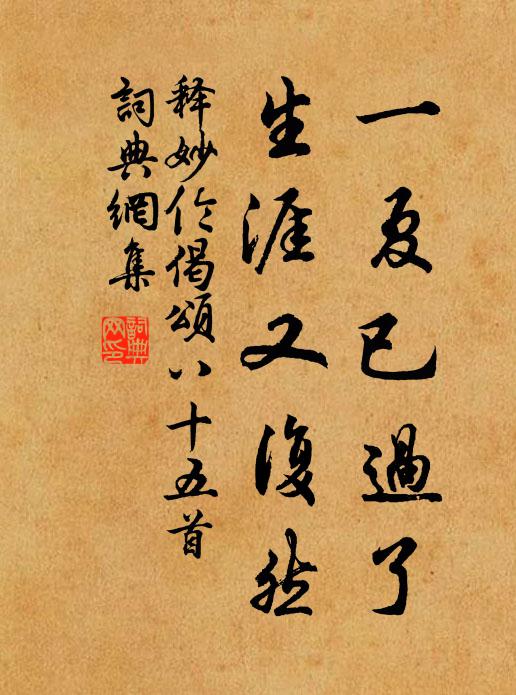 一夏已過了
生涯又復然
释妙伦偈頌八十五首
詞典網集
詞典網印